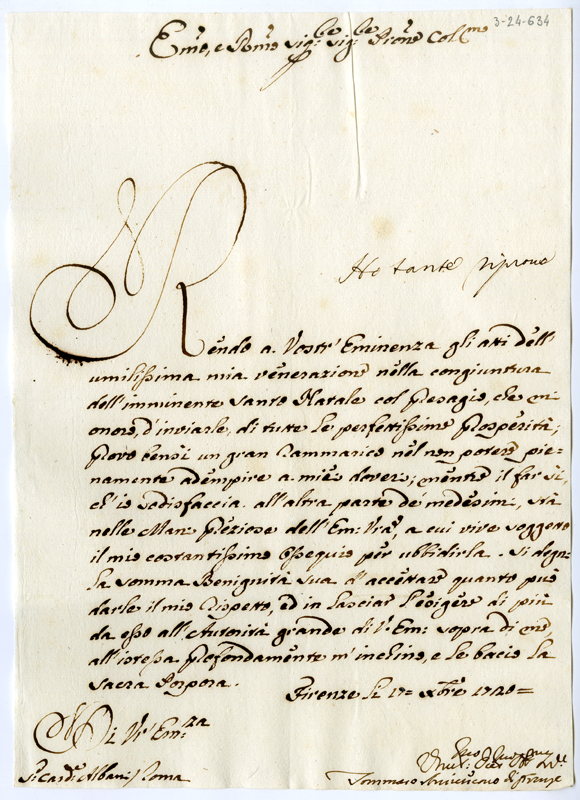 3-24-634
Em̃o, e Rm̃o Sig:re Sig:re Prõne Col.mo
Ho tante riprove
Rendo a Vostr' Eminenza gli atti dell'
umilissima mia venerazione nella congiuntura
dell'imminente Santo Natale col presagio, che mi
onoro, d'inviarle, di tutte le perfettissime prosperità;
provo bensì un gran rammarico nel non potere pie-
namente adempire a miei doveri; mentre il far sì,
ch'io sodisfaccia all'altra parte de' medesimi, stà
nelle Mani preziose dell'Em: Vrã, a cui vive soggetto
il mio costantissimo Ossequio per ubbidirla. Si degni
la somma Benignità Sua d'accettare quanto può
darle il mio Rispetto, ed in lasciar l'esigere di più
da esso all'Autorità grande di V. Em: sopra di me
all'istessa profondamente m'inchino, e le bacio la
Sacra Porpora.
Firenze li 17= Xbre 1720=
Di Vr̃ Em:za
S.r Card: Albani Roma
Tommaso di Firenze